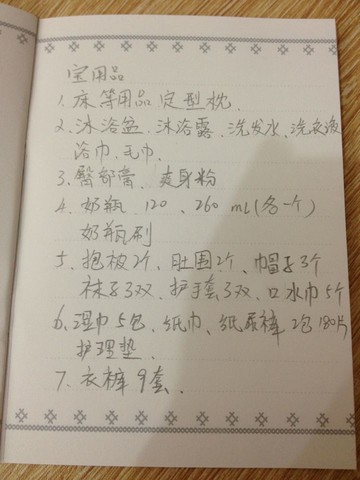 宝用品
1. 床等用品 定型枕.
2. 沐浴盆. 沐浴露. 洗发水、洗衣液
浴巾、毛巾.
3. 臀部膏. 爽身粉
4. 奶瓶 120、260 ml(各一个)
奶瓶刷
5. 抱被2个、肚围2个、帽子3个
袜子3双. 护手套3双、口水巾5个
6. 湿巾5包、纸巾、纸尿裤 2包 180片
护理垫.
7. 衣裤9套.